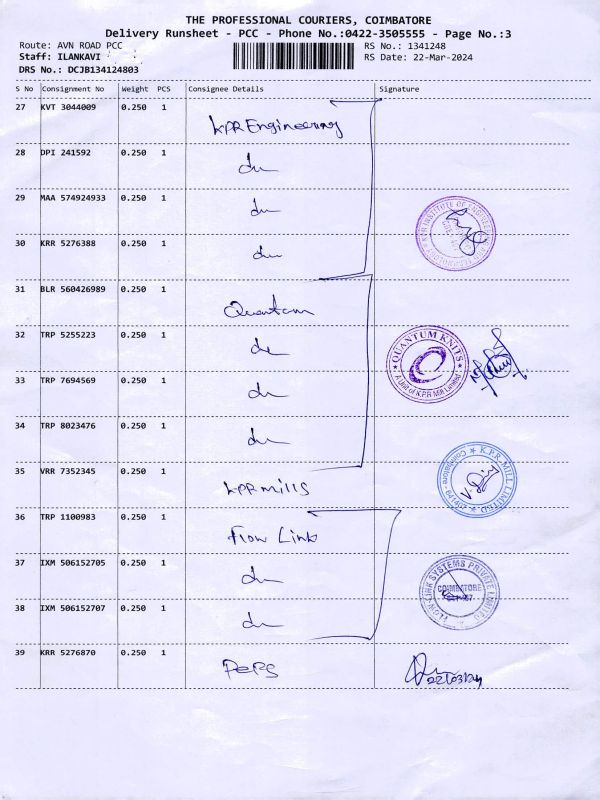 THE PROFESSIONAL COURIERS, COIMBATORE
Delivery Runsheet - PCC - Phone No.:0422-3505555 - Page No.:3
Route: AVN ROAD PCC RS No.: 1341248
Staff: ILANKAVI RS Date: 22-Mar-2024
DRS No.: DCJB134124803
S No Consignment No Weight PCS Consignee Details Signature
27 KVT 3044009 0.250 1 KPR Engineering
28 DPI 241592 0.250 1 do
29 MAA 574924933 0.250 1 do
30 KRR 5276388 0.250 1 do
KPR INSTITUTE OF ENGINEERING
31 BLR 560426989 0.250 1 Quantum
32 TRP 5255223 0.250 1 do
33 TRP 7694569 0.250 1 do
QUANTUM KNITS
A Unit of K.P.R Mill Limited
34 TRP 8023476 0.250 1 do
35 VRR 7352345 0.250 1 KPR mills
K.P.R. MILL LIMITED
Coimbatore - 641407
36 TRP 1100983 0.250 1 Flow Link
37 IXM 506152705 0.250 1 do
38 IXM 506152707 0.250 1 do
FLOW-LINK SYSTEMS PRIVATE LIMITED
COIMBATORE
39 KRR 5276870 0.250 1 PePS
22/03/24